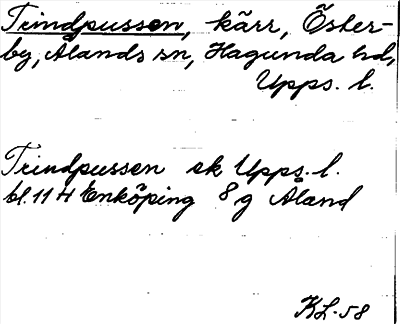 Trindpussen, kärr, Öster-
by, Ålands sn, Hagunda hd,
Upps. l.
Trindpussen ek Upps. l.
bl. 114 Enköping 8 g Åland
KL-58